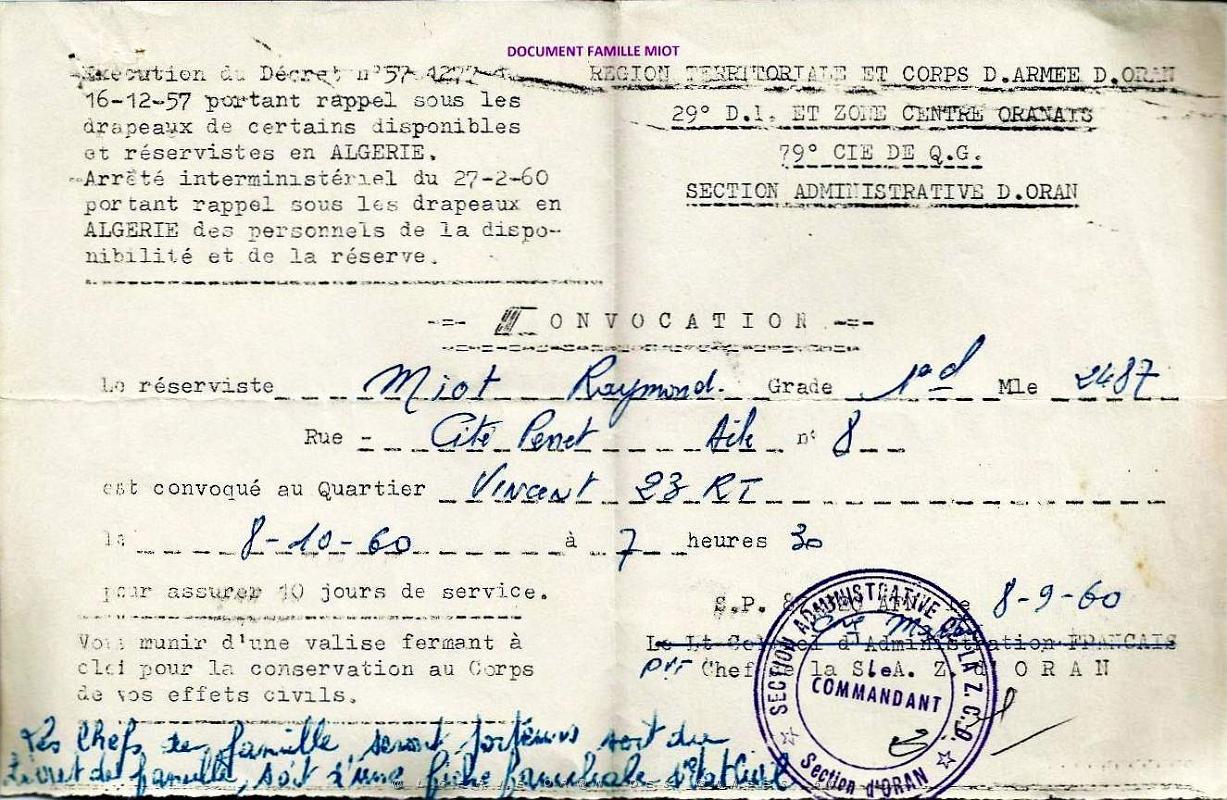 DOCUMENT FAMILLE MIOT
Exécution du Décret n°57-1277
16-12-57 portant rappel sous les
drapeaux de certains disponibles
et réservistes en ALGERIE.
Arrêté interministériel du 27-2-60
portant rappel sous les drapeaux en
ALGERIE des personnels de la dispo-
nibilité et de la réserve.
REGION TERRITORIALE ET CORPS D.ARMEE D.ORAN
29° D.I. ET ZONE CENTRE ORANAIS
79° CIE DE Q.G.
SECTION ADMINISTRATIVE D.ORAN
-=- CONVOCATION -=-
Le réserviste Miot Raymond. Grade Mle 2487
Rue - Cité Penet n° 8
est convoqué au Quartier Vincent 23 RT
le 8-10-60 à 7 heures 30
pour assurer 10 jours de service.
Vous munir d'une valise fermant à
clef pour la conservation au Corps
de vos effets civils.
S.P. le 8-9-60
Le Lt Colonel d'Administration FRANCAIS
Chef de la S.A. Z. d'ORAN
SECTION ADMINISTRATIVE DE LA Z.C.O.
Le
COMMANDANT
Section d'ORAN
Les Chefs de famille seront porteurs soit du
Livret de famille, soit d'une fiche familiale d'état Civil